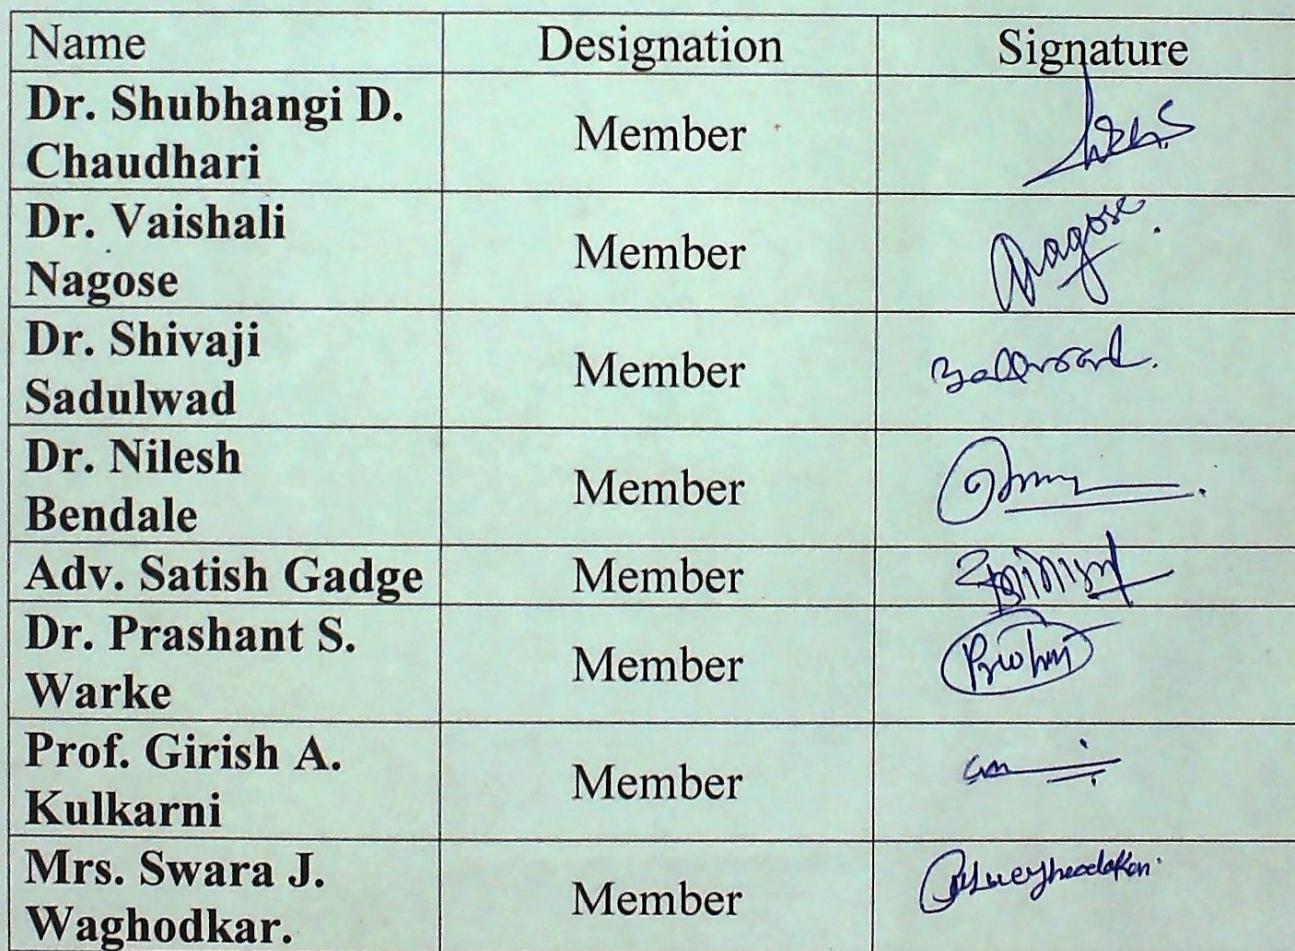 Name Designation Signature
Dr. Shubhangi D.
Chaudhari
Member
Dr. Vaishali
Nagose
Member
Nagose.
Dr. Shivaji
Sadulwad
Member
Dr. Nilesh
Bendale
Member
Adv. Satish Gadge
Member
Dr. Prashant S.
Warke
Member
Prof. Girish A.
Kulkarni
Member
Mrs. Swara J.
Waghodkar.
Member